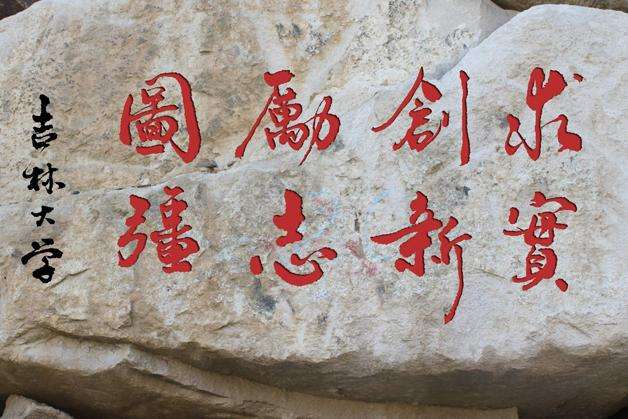 求實
創新
勵志
圖強
吉林大学